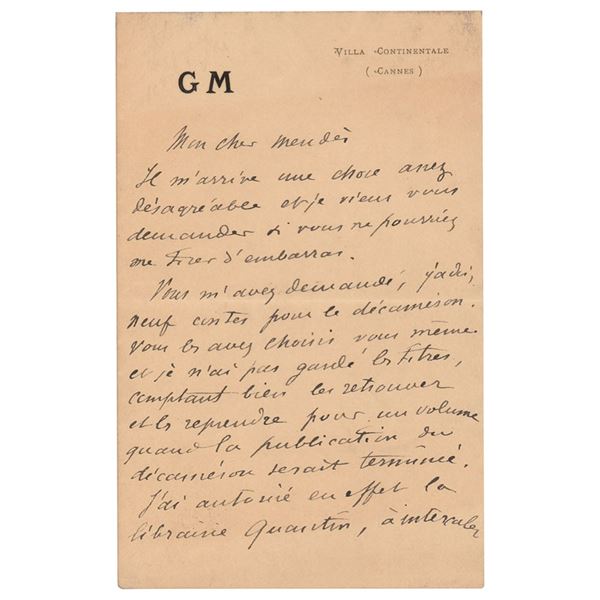 VILLA CONTINENTALE
(CANNES)
GM
Mon cher Mendès
Il m'arrive une chose assez
désagréable et je viens vous
demander si vous ne pourriez
me tirer d'embarras.
Vous m'avez demandé, jadis,
neuf contes pour le décaméron.
Vous les avez choisis vous même
et je n'ai pas gardé les titres,
comptant bien les retrouver
et les reprendre pour un volume
quand la publication du
décaméron serait terminée.
J'ai autorisé en effet la
librairie Quantin, à intervalles